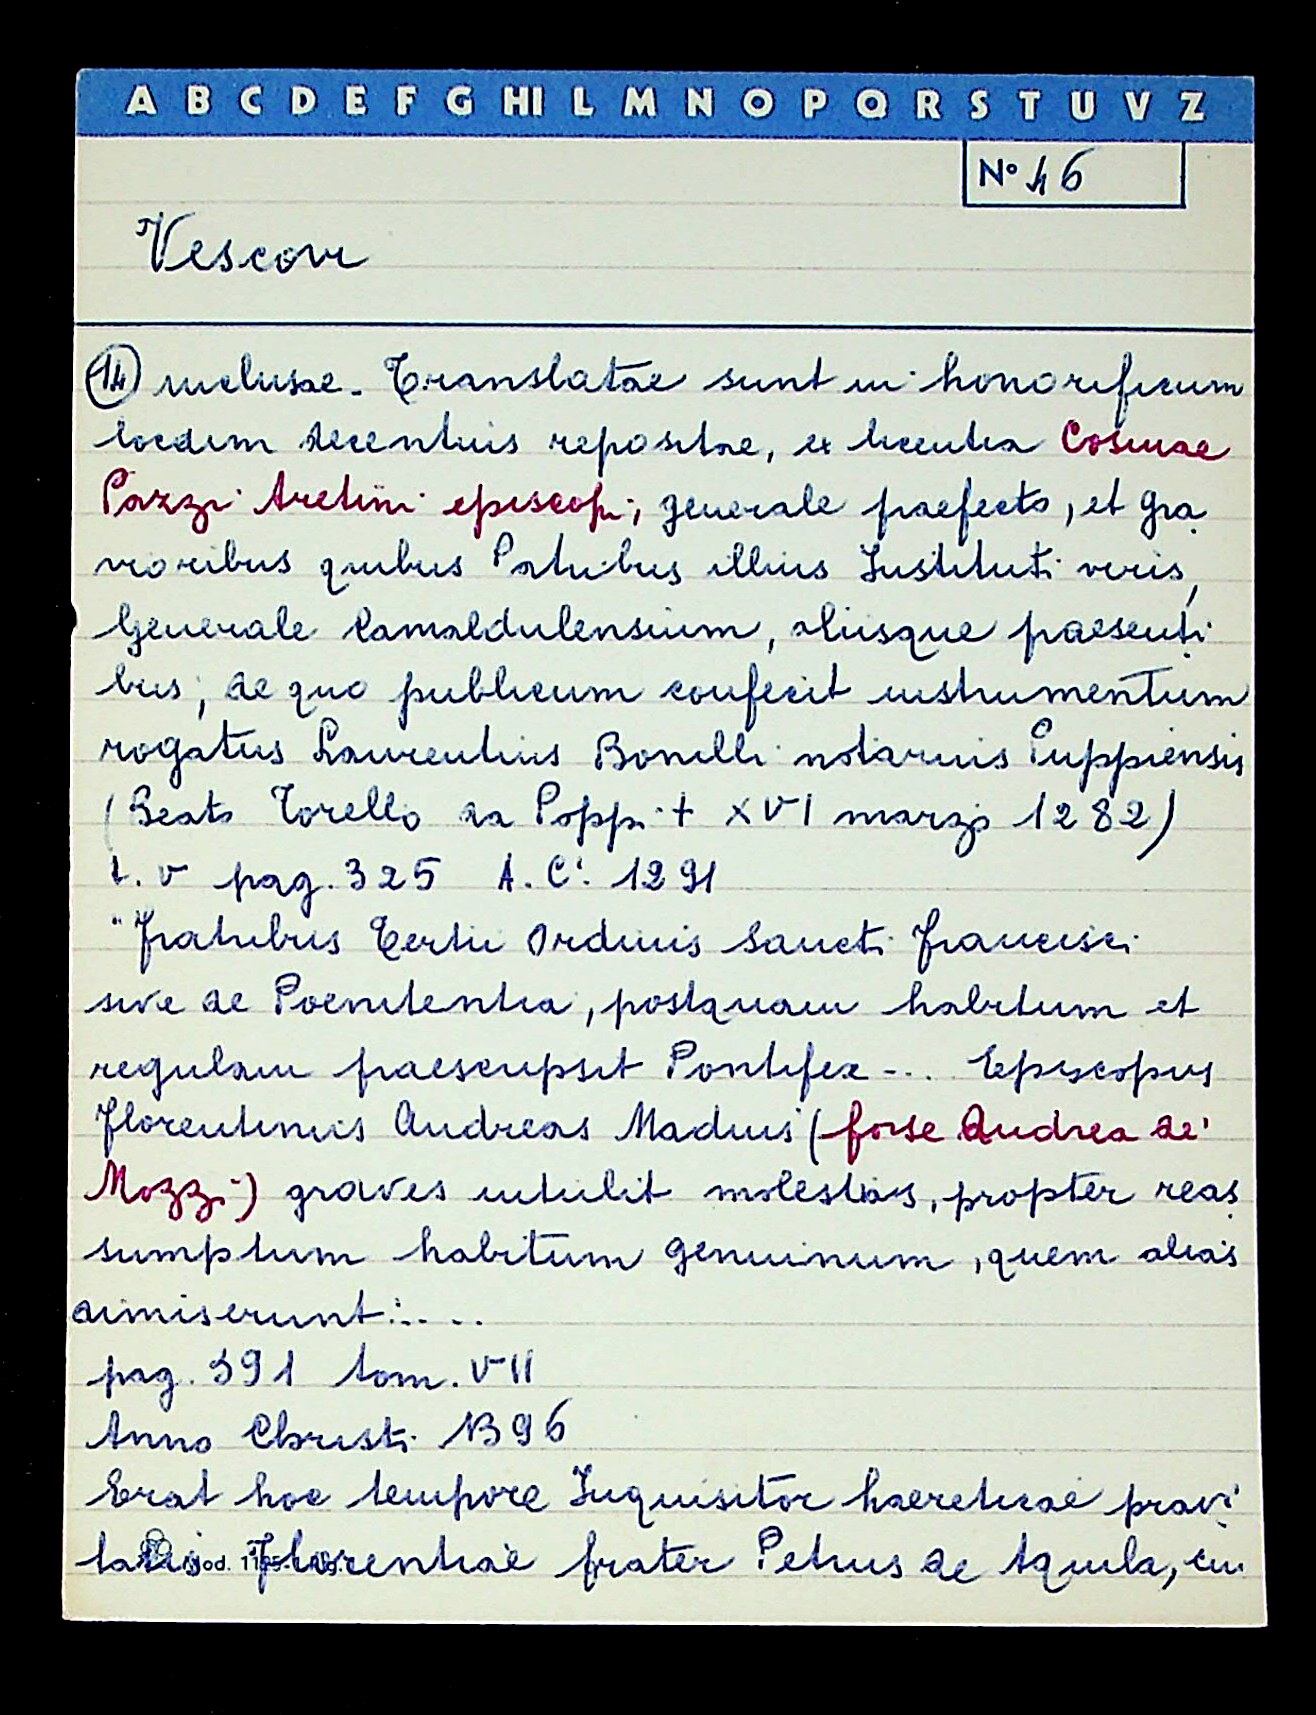 A B C D E F G HI L M N O P Q R S T U V Z
N° 46
Vescovi
(14) inclusae. Translatae sunt in honorificum
locum decentius repositae, ex licentia Cosmae
Pazzi Aretini episcopi, generale praefecto, et gra
vioribus quibus Patribus illius Instituti viris,
Generale Camaldulensium, aliisque praesenti
bus; de quo publicum confecit instrumentum
rogatus Laurentius Bonilli notarius Puppiensis
(Beato Torello da Poppi + XVI marzo 1282)
t. V pag. 325 A. C. 1291
"Fratribus Tertii Ordinis Sancti Francisci
sive de Poenitentia, postquam habitum et
regulam praescripsit Pontifex... Episcopus
Florentinus Andreas Madius (forse Andrea de'
Mozzi) graves intulit molestias, propter reas
sumptum habitum genuinum, quem alias
dimiserunt....
pag. 391 tom. VII
Anno Christi 1396
Erat hoc tempore Inquisitor haereticae pravi
tatis Florentiae frater Petrus de Aquila, cui